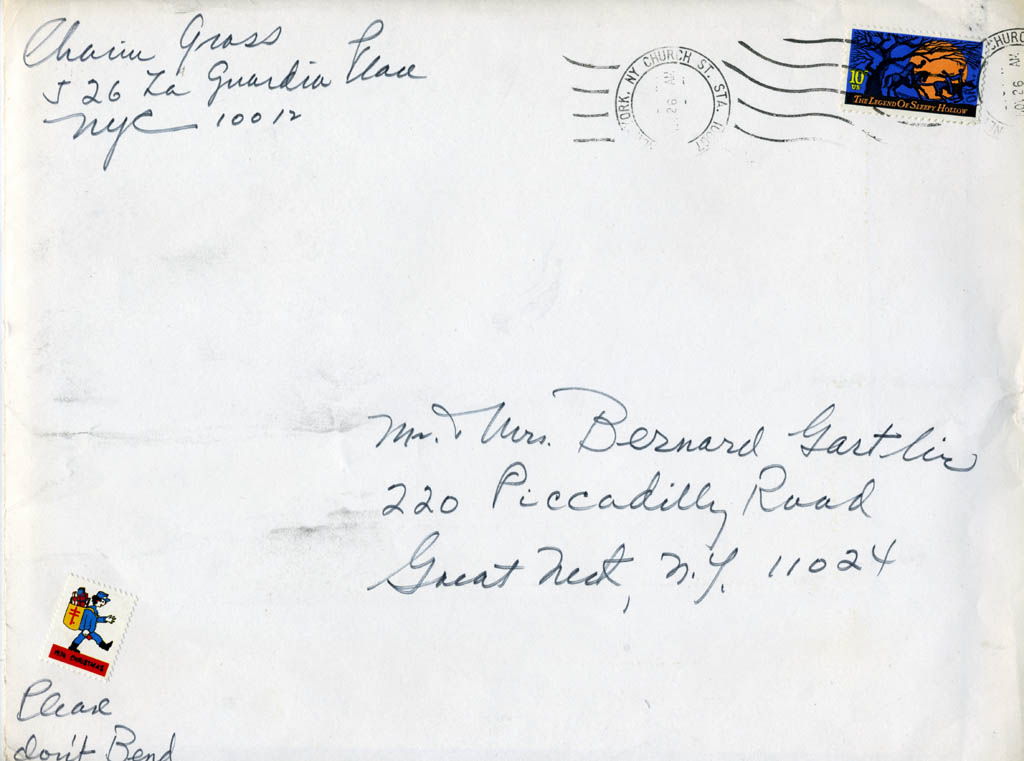 Chaim Gross
526 La Guardia Place
NYC 10012
YORK, NY CHURCH ST. STA. 
26 AM
10
US
THE LEGEND OF SLEEPY HOLLOW
CHURC
26 AM
Mr. & Mrs. Bernard Gartlir
220 Piccadilly Road
Great Neck, N.Y. 11024
1974 CHRISTMAS
Please
don't Bend